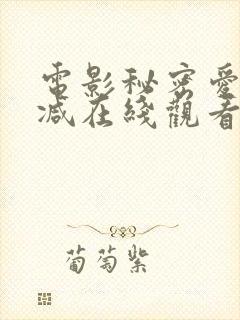 電影秘密愛
減在綫觀看
葡萄紫